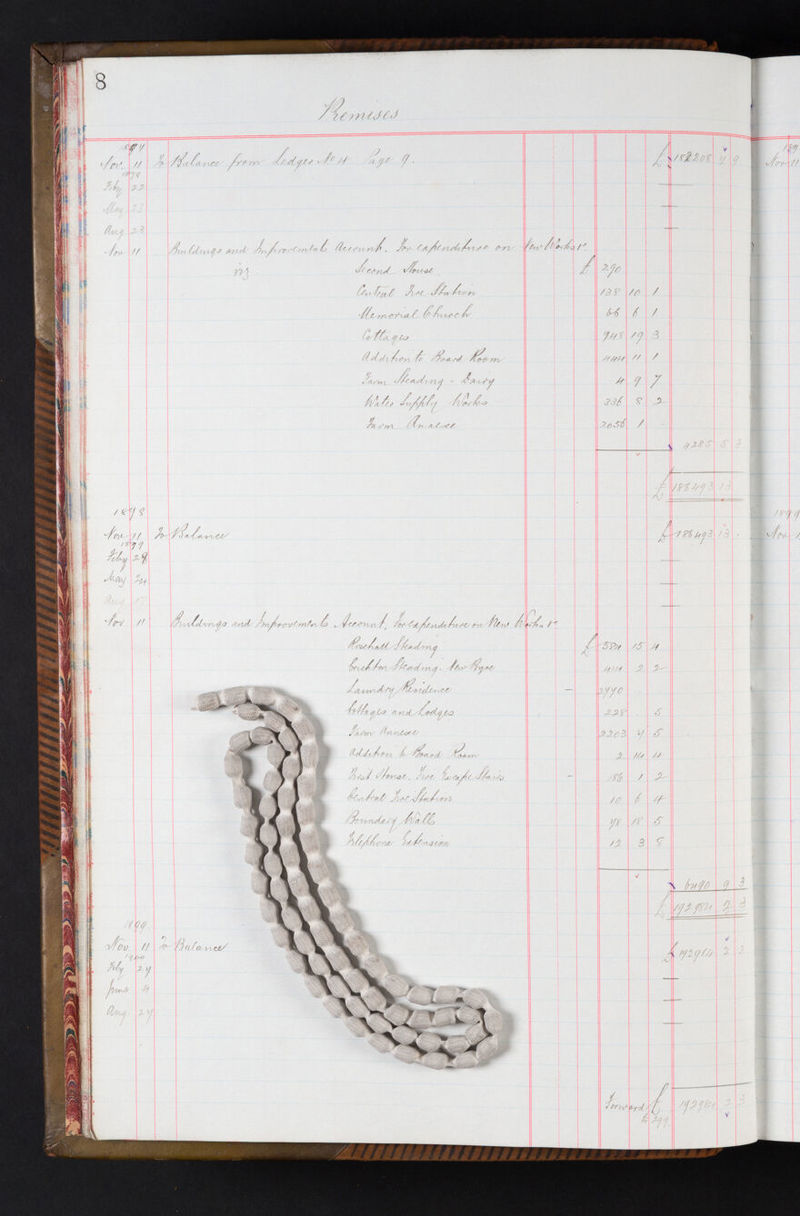 8
Premises
1897
Nov. 11 To Balance from Ledger No 4 Page 9. £ 182208 7 9
1898
Feby 22
May 23
Aug 23
Nov 11 Buildings and Improvements Account. For expenditure on New Works &c
viz Second House £ 290
Central Fire Station 138 10 1
Memorial Church 66 6 1
Cottages 948 19 3
Addition to Board Room 11 1
Farm Steading - Dairy 4 9 7
Water Supply Works 336 8 2
Farm Annexe 2056 1
4285 5 3
£ 186493 13
1898
Nov. 11 To Balance £ 186493 13
1899
Feby 28
May 24
Aug 17
Nov 11 Buildings and Improvements Account, For expenditure on New Works &c
Rosehall Steading £ 584 15 4
Crichton Steading - New Byre 414 2 2
Laundry Residence 2770
Cottages and Lodges 228 . 5
Farm Annexe 2203 7 5
Addition to Board Room 2 14 4
First House. Fire Escape Stairs 186 1 2
Central Fire Station 10 6 4
Boundary Walls 78 18 5
Telephone Extension 12 3 8
6490 9 3
£ 192984 2 3
1899
Nov 11 To Balance £ 192984 2 3
1900
Feby 27
June 4
Aug. 27
Forward £ 192984 2 3
to 299